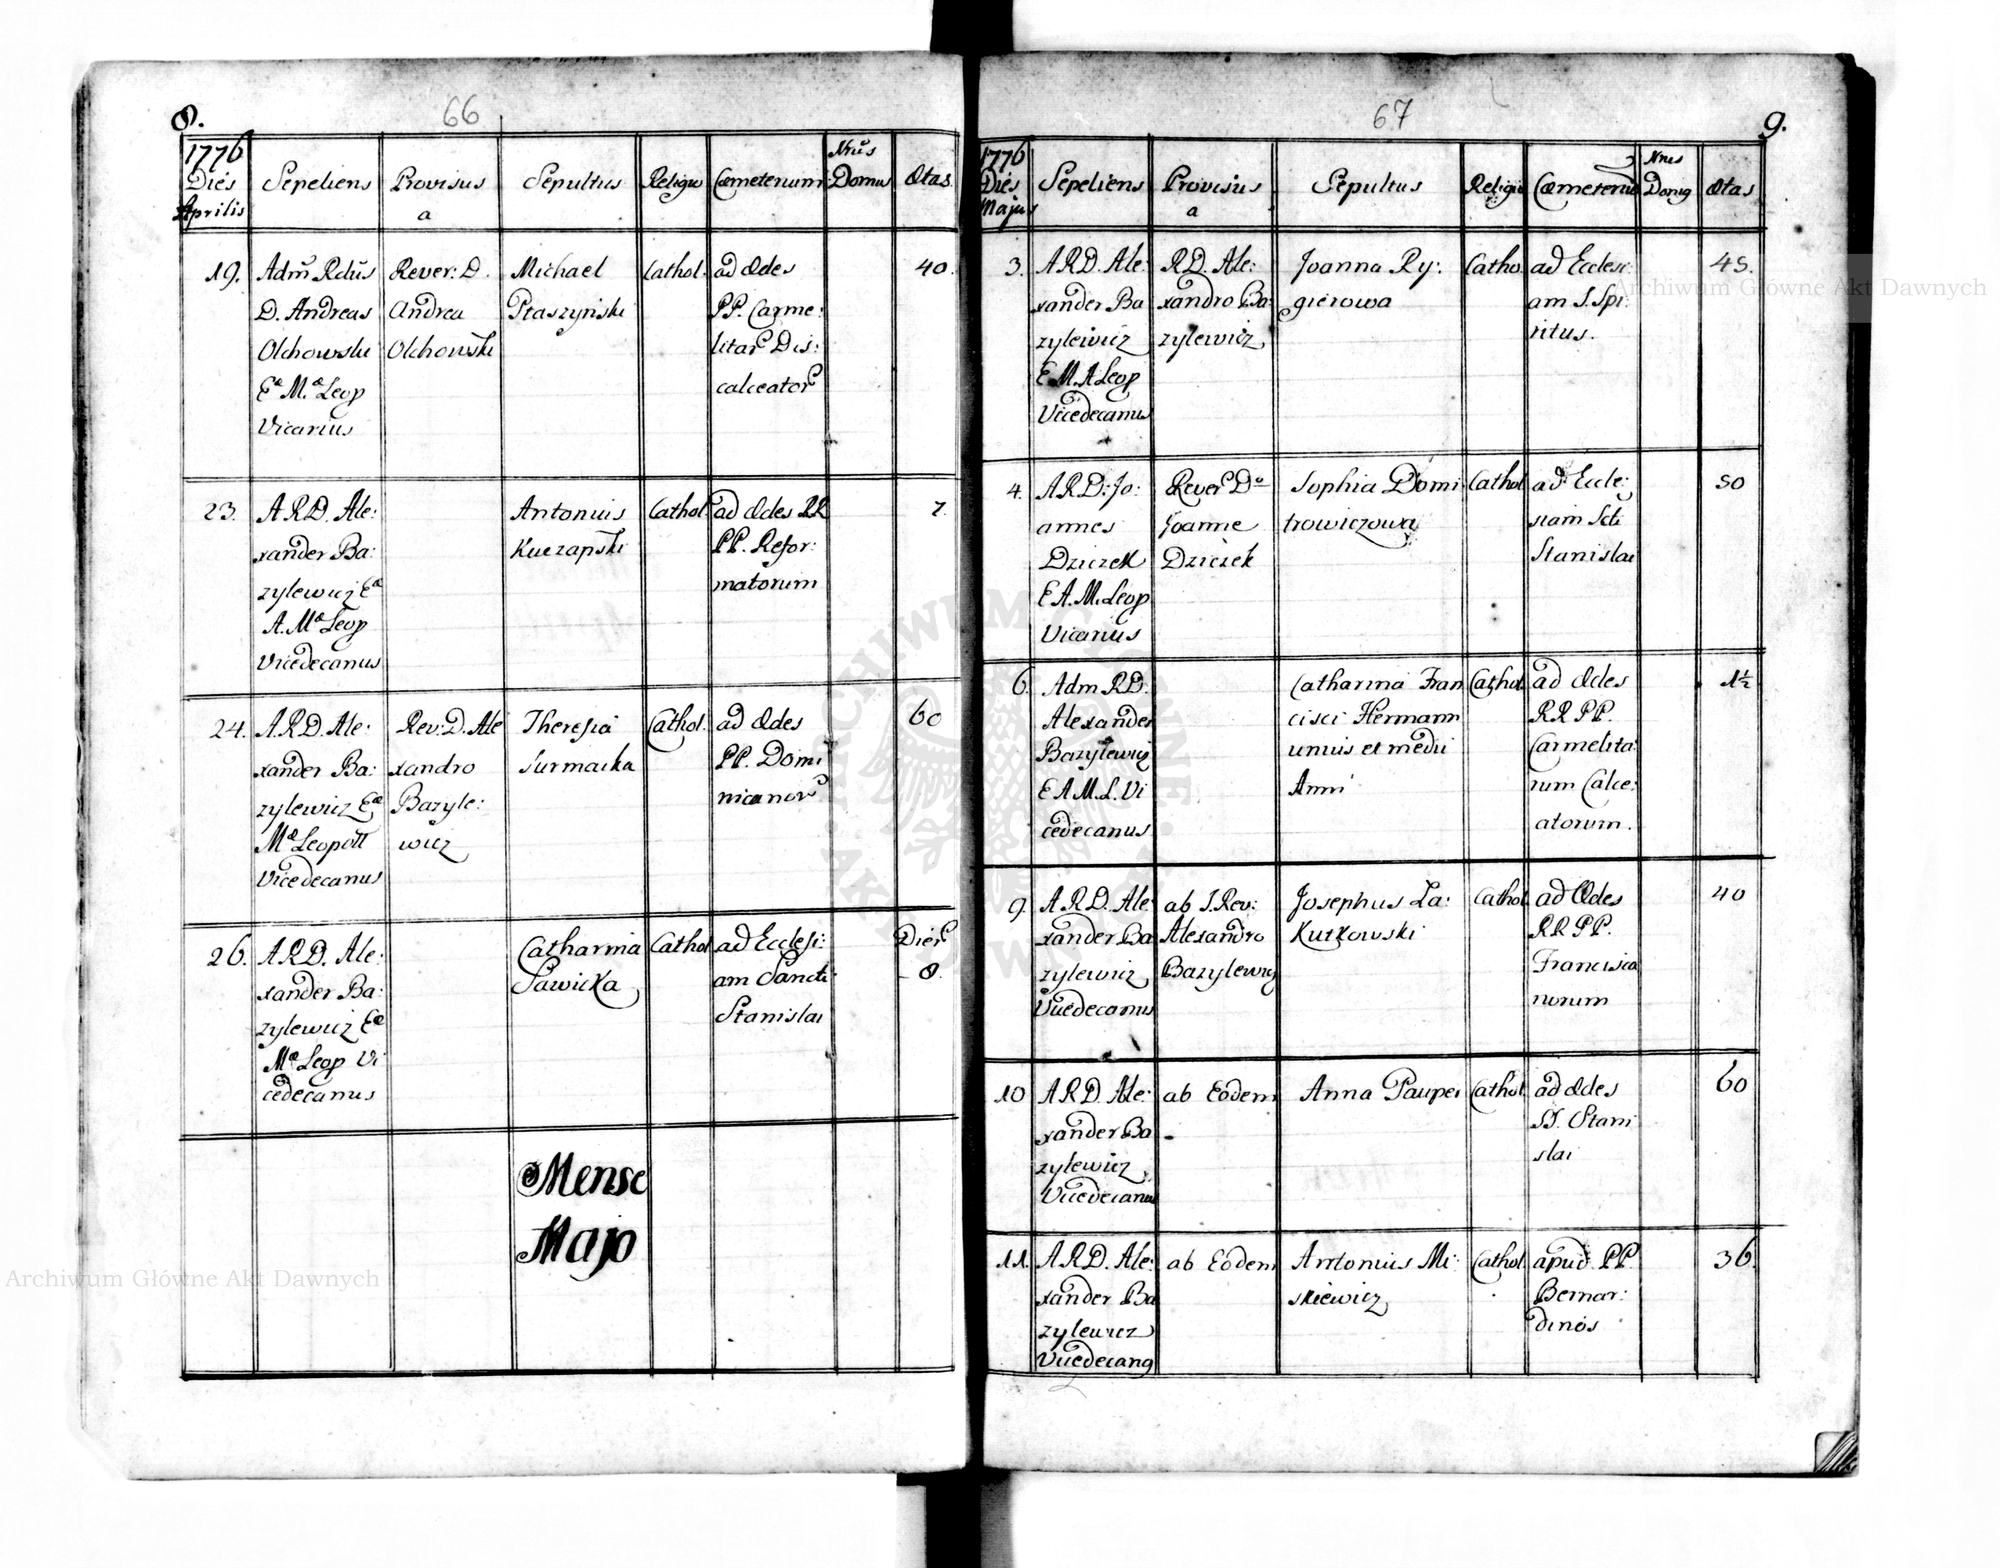 8.
66
1776
Dies
Aprilis
Sepeliens
Provisus
a
Sepultus
Religio
Cœmeterium
Nrus
Domus
Ætas.
19.
Admū Rdūs
D. Andreas
Olchowski
Eæ Mæ Leop
Vicarius
Rever: D.
Andrea
Olchowski
Michael
Ptaszyński
Cathol.
ad Ædes
PP. Carme:
litar Dis:
calceator
40.
23.
A.R.D. Ale:
xander Ba:
zylewicz Eæ
A. Mæ Leop
Vicedecanus
Antonius
Kuczapski
Cathol.
ad Ædes RR
PP. Refor:
matorum
7.
24.
A.R.D. Ale:
xander Ba:
zylewicz Eæ
Mæ Leopoll
Vicedecanus
Rev: D. Ale
xandro
Bazyle:
wicz
Theresia
Surmacka
Cathol.
ad Ædes
PP. Domi
nicanor
60
26.
A.R.D. Ale:
xander Ba:
zylewicz Eæ
Mæ Leop Vi
cedecanus
Catharina
Sawicka
Cathol
ad Ecclesi:
am Sancti
Stanislai
Dier
8.
Mense
Majo
67
9.
1776
Dies
Majus
Sepeliens
Provisus
a
Sepultus
Religio
Cœmeteriu
Nrus
Domg
Ætas
3.
A.R.D. Ale:
xander Ba
zylewicz
E.M.A Leop
Vicedecanus
R.D. Ale:
xandro Ba:
zylewicz
Joanna Ry:
gierowa
Catho.
ad Eccles:
am S. Spi:
ritus.
45.
4.
A.R.D: Jo:
annes
Dziczek
E.A.M. Leop
Vicarius
Rever Do
Joanne
Dziczek
Sophia Domi
trowiczowa
Cathol
ad Eccle:
siam Sti
Stanislai
50
6.
Adm R.D.
Alexander
Bazylewicz
E.A.M.L. Vi
cedecanus
Catharina Fran
cisci Hermann
unius et medii
Anni
Cathol.
ad Ædes
RR PP.
Carmelita:
rum Calce:
atorum.
1½
9.
A.R.D. Ale
xander Ba
zylewicz
Vicedecanus
ab S. Rev:
Alexandro
Bazylewicz
Josephus La:
Kutkowski
Cathol
ad Ædes
RR PP.
Francisca
norum
40
10
A.R.D. Ale:
xander Ba
zylewicz
Vicedecanus
ab Eodem
Anna Pauper
Cathol.
ad Ædes
S. Stani
slai
60
11.
A.R.D. Ale:
xander Ba
zylewicz
Vicedecang
ab Eodem
Antonius Mi:
skiewicz
Cathol.
apud PP.
Bernar:
dinos
36.
Archiwum Główne Akt Dawnych
Archiwum Główne Akt Dawnych
ARCHIWUM GŁÓWNE
AKT DAWNYCH